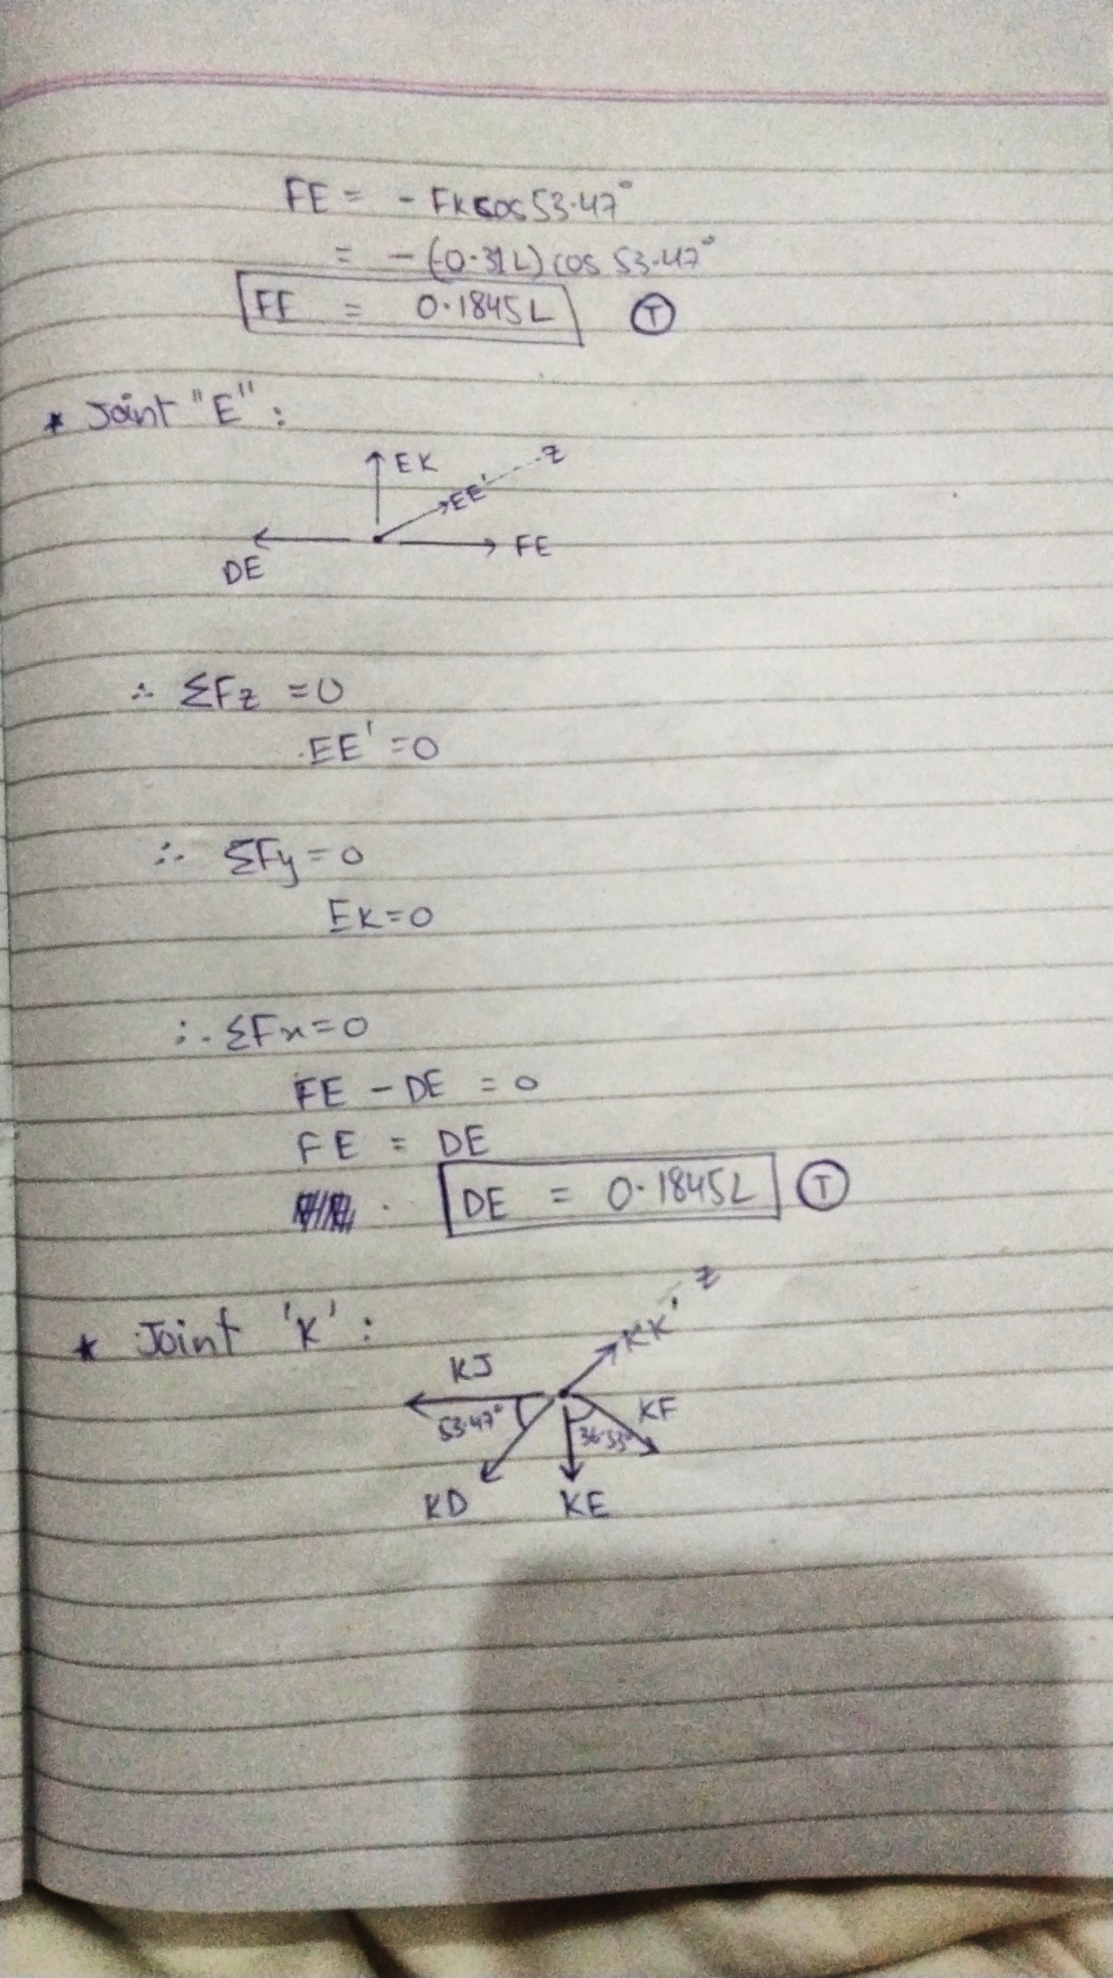 FE = - FK cos 53.47°
= - (-0.31L) cos 53.47°
FE = 0.1845L (T)
* Joint "E" :
EK
Z
EE'
DE
FE
∴ ΣFz = 0
EE' = 0
∴ ΣFy = 0
EK = 0
∴ ΣFx = 0
FE - DE = 0
FE = DE
DE = 0.1845L (T)
* Joint 'K' :
Z
KK'
KJ
53.47°
KF
36.53°
KD
KE